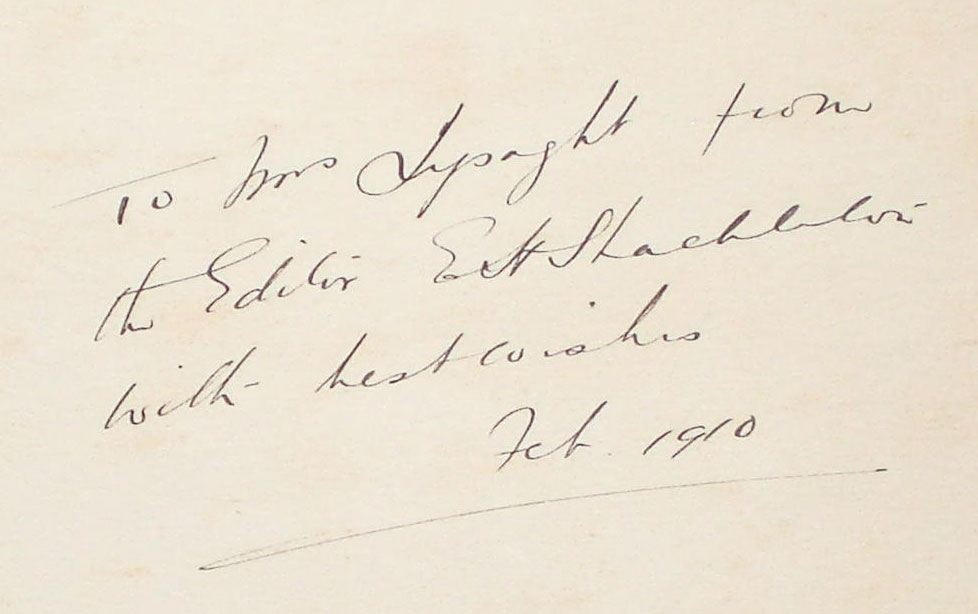 To Mrs Lysaght from
the Editor E H Shackleton
with best wishes
Feb. 1910